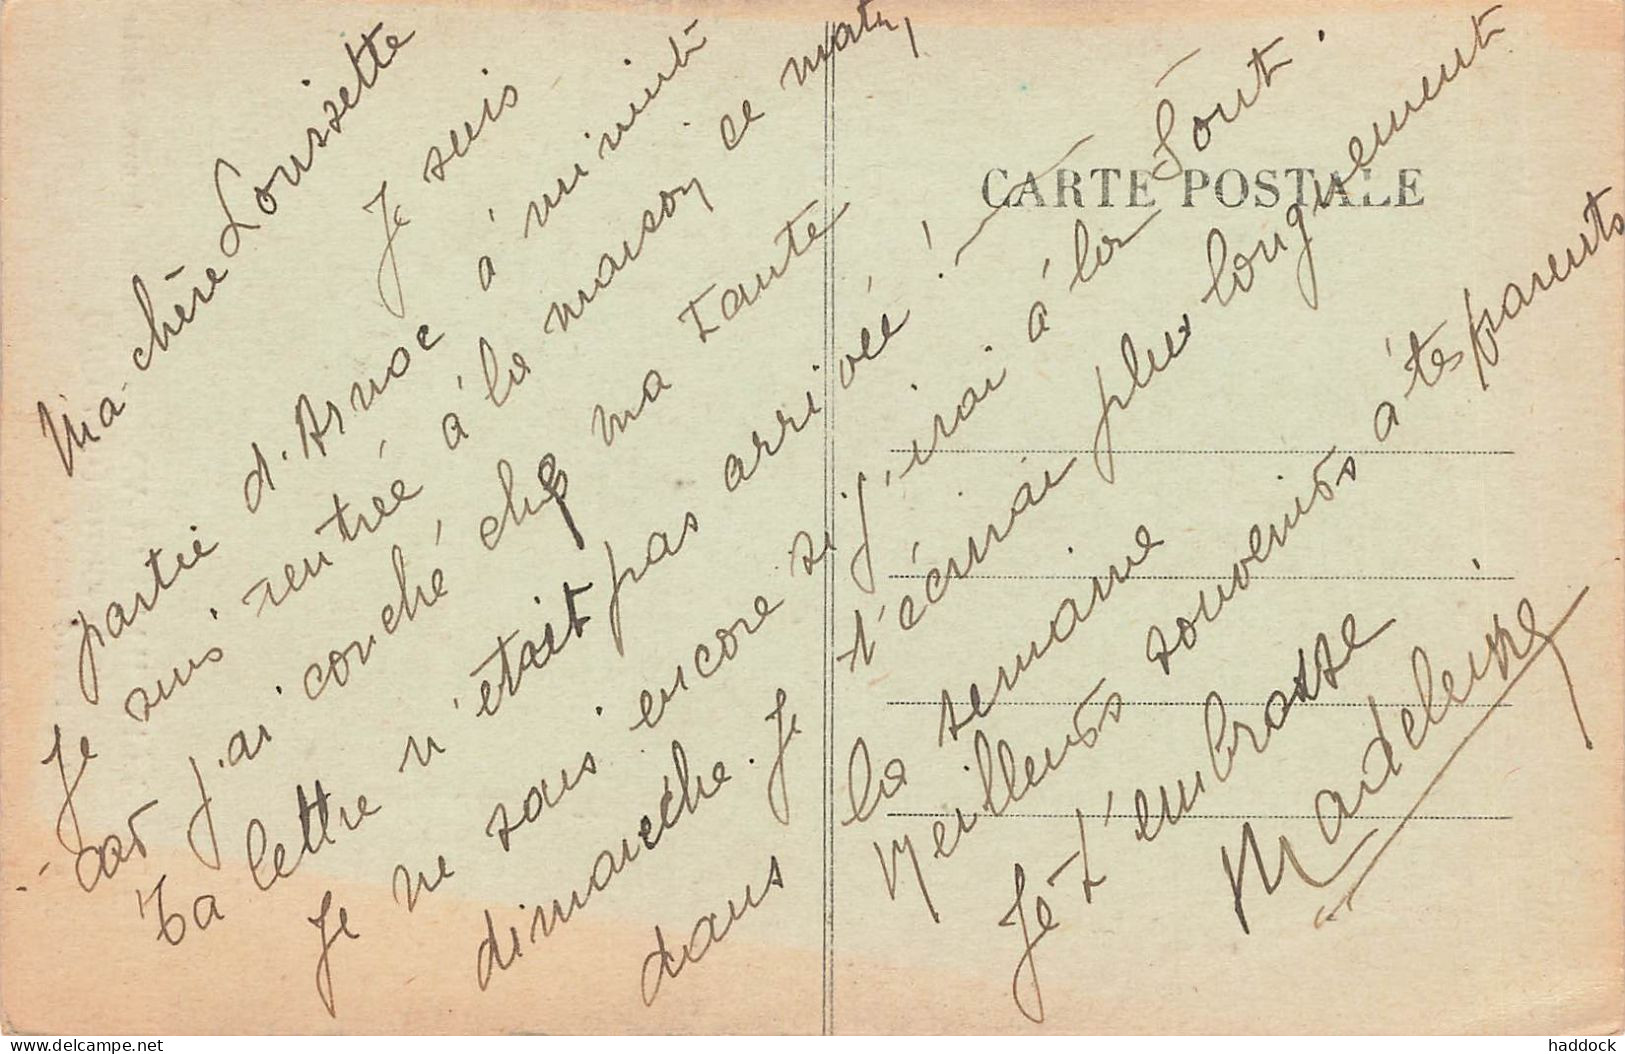 Ma chère Lousette
Je suis
partie d'Arnac à minuit
Je suis rentrée à la maison ce matin,
car j'ai couché chez ma Tante
Ta lettre n'était pas arrivée !
Je ne sais encore si j'irai à la Font.
dimanche. Je t'écrirai plus longuement
dans la semaine
Meilleurs souvenirs à tes parents
Je t'embrasse
Madeleine
CARTE POSTALE
delcampe.net
haddock